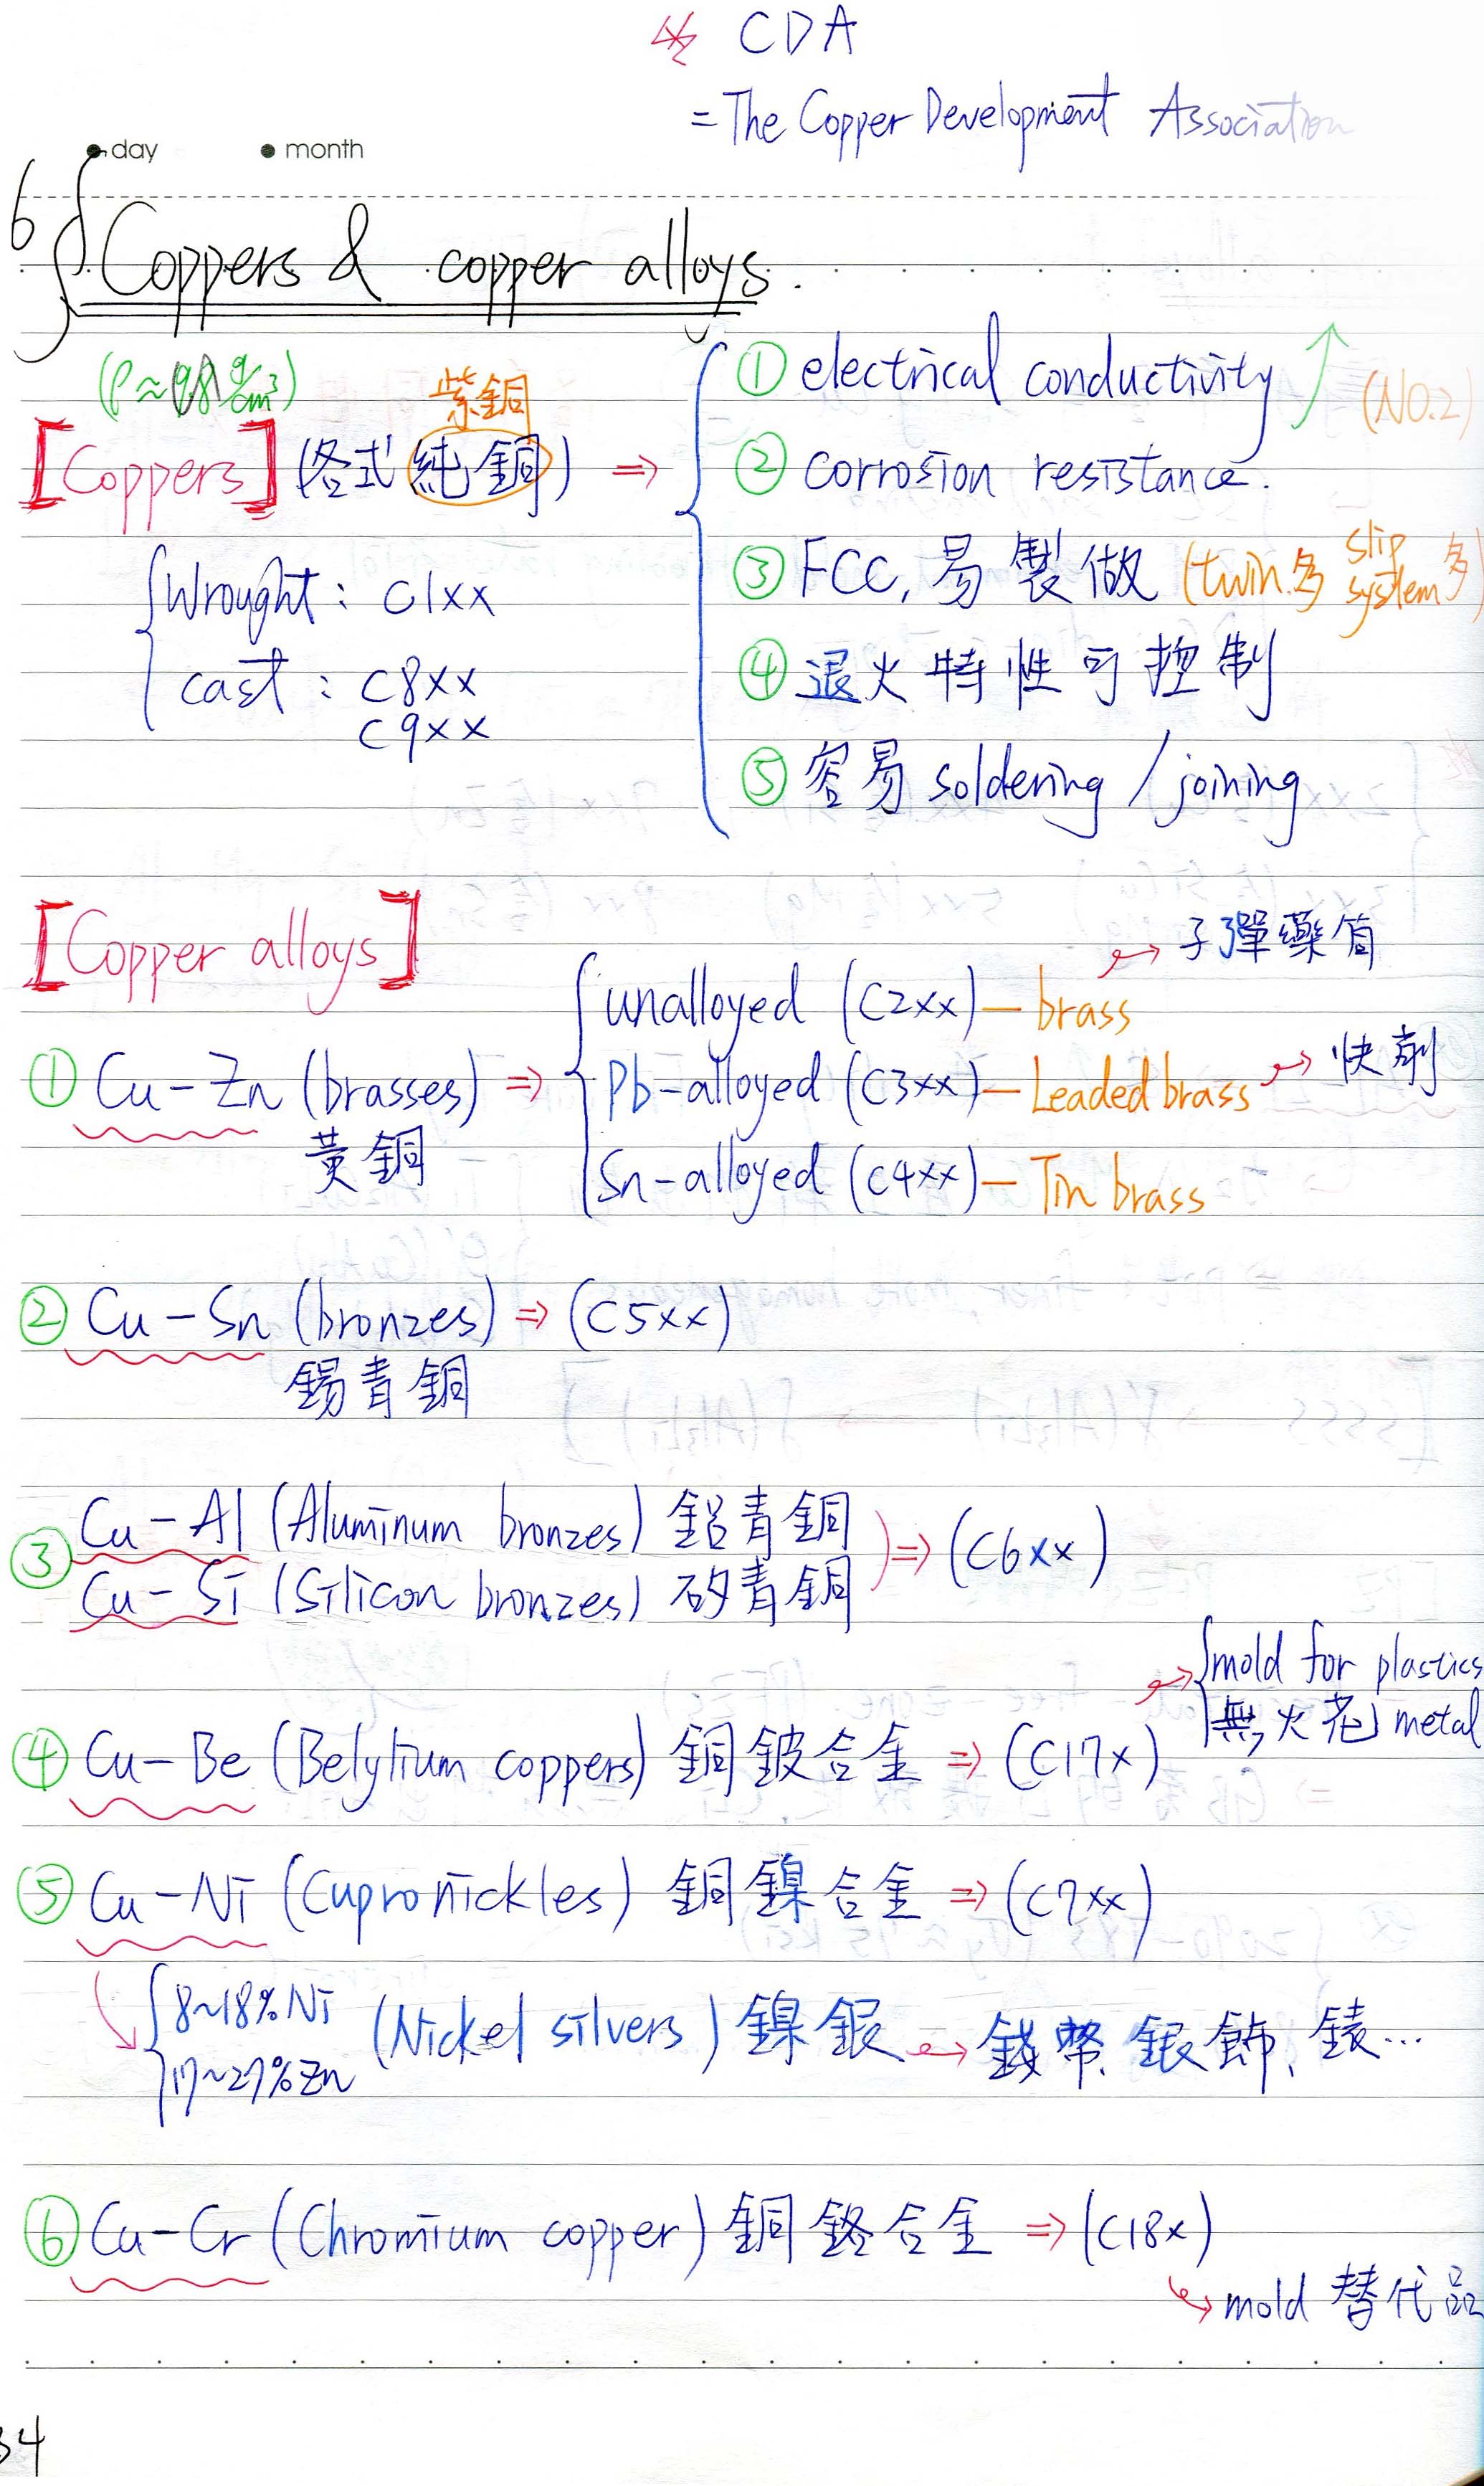 ※ CDA
= The Copper Development Association
day month
6 § Coppers & copper alloys.
(ρ ≈ g/cm³)
紫銅
[Coppers] (各式純銅) ⇒
① electrical conductivity ↑ (NO.2)
② corrosion resistance.
③ FCC, 易製做 (twin多 slip system多)
④ 退火特性可控制
⑤ 容易 soldering / joining
Wrought : C1xx
cast : C8xx
C9xx
[Copper alloys]
① Cu-Zn (brasses) ⇒
黃銅
unalloyed (C2xx) — brass → 子彈藥筒
Pb-alloyed (C3xx) — Leaded brass → 快削
Sn-alloyed (C4xx) — Tin brass
② Cu-Sn (bronzes) ⇒ (C5xx)
錫青銅
③ Cu-Al (Aluminum bronzes) 鋁青銅
Cu-Si (Silicon bronzes) 矽青銅 ⇒ (C6xx)
④ Cu-Be (Belylium coppers) 銅鈹合金 ⇒ (C17x) → mold for plastics
無火花 metal
⑤ Cu-Ni (Cupronickles) 銅鎳合金 ⇒ (C7xx)
8~18% Ni
17~27% Zn (Nickel silvers) 鎳銀 → 錢幣、銀飾、錶...
⑥ Cu-Cr (Chromium copper) 銅鉻合金 ⇒ (C18x)
→ mold 替代品
34